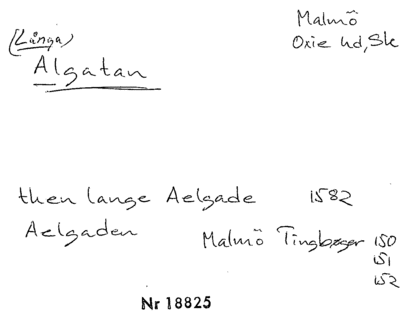 Malmö
(Långa)
Oxie hd, Sk
Algatan
then lange Aelgade 1582
Aelgaden Malmö Tingbøger 150
151
152
Nr 18825